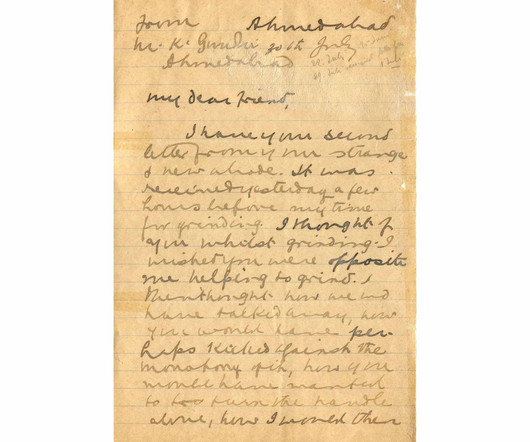 From Ahmedabad
M. K. Gandhi 30th July
Ahmedabad
my dear friend,
I have your second
letter from your strange
& new abode. It was
received yesterday a few
hours before my time
for grinding. I thought of
you whilst grinding. I
wished you were opposite
me helping to grind. I
then thought how we wd
have talked away, how
you would have per-
haps kicked against the
monotony of it, how you
would have wanted
to too turn the handle
alone, how I would then